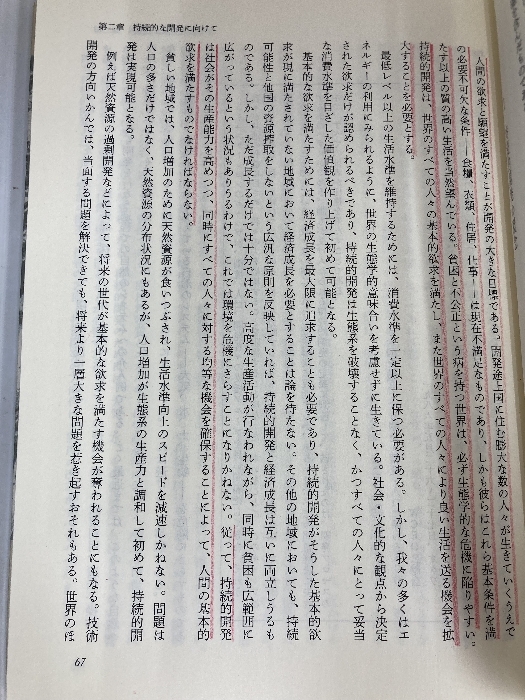 第二章　持続的な開発に向けて
人間の欲求と願望を満たすことが開発の大きな目標である。開発途上国に住む膨大な数の人々が生きていくうえで
の必要不可欠な条件――食糧、衣類、住居、仕事――は現在不満足なものであり、しかも彼らはこれら基本条件を満
たす以上の質の高い生活を当然望んでいる。貧困と不公正という病を持つ世界は、必ず生態学的な危機に陥りやすい。
持続的開発は、世界のすべての人々の基本的欲求を満たし、また世界のすべての人々により良い生活を送る機会を拡
大することを必要とする。
最低レベル以上の生活水準を維持するためには、消費水準を一定以上に保つ必要がある。しかし、我々の多くはエ
ネルギーの利用にみられるように、世界の生態学的意味合いを考慮せずに生きている。社会・文化的な観点から決定
された欲求だけが認められるべきであり、持続的開発は生態系を破壊することなく、かつすべての人々にとって妥当
な消費水準を目ざした価値観を作り上げて初めて可能となる。
基本的な欲求を満たすためには、経済成長を最大限に追求することも必要であり、持続的開発がそうした基本的欲
求が現に満たされていない地域において経済成長を必要とすることは論を待たない。その他の地域においても、持続
可能性と他国の資源搾取をしないという広汎な原則を反映していれば、持続的開発と経済成長は互いに両立しうるも
のである。しかし、ただ成長するだけでは十分ではない。高度な生産活動が行なわれながら、同時に貧困も広範囲に
広がっているという状況もありうるわけで、これでは環境を危機にさらすことになりかねない。従って、持続的開発
は社会がその生産能力を高めつつ、同時にすべての人々に対する均等な機会を確保することによって、人間の基本的
欲求を満たすものでなければならない。
貧しい地域では、人口増加のために天然資源が食いつぶされ、生活水準向上のスピードを減速しかねない。問題は
人口の多さだけではなく、天然資源の分布状況にもあるが、人口増加が生態系の生産力と調和して初めて、持続的開
発は実現可能となる。
例えば天然資源の過剰開発などによって、将来の世代が基本的な欲求を満たす機会が奪われることにもなる。技術
開発の方向いかんでは、当面する問題を解決できても、将来より一層大きな問題を惹き起すおそれもある。世界のほ
67